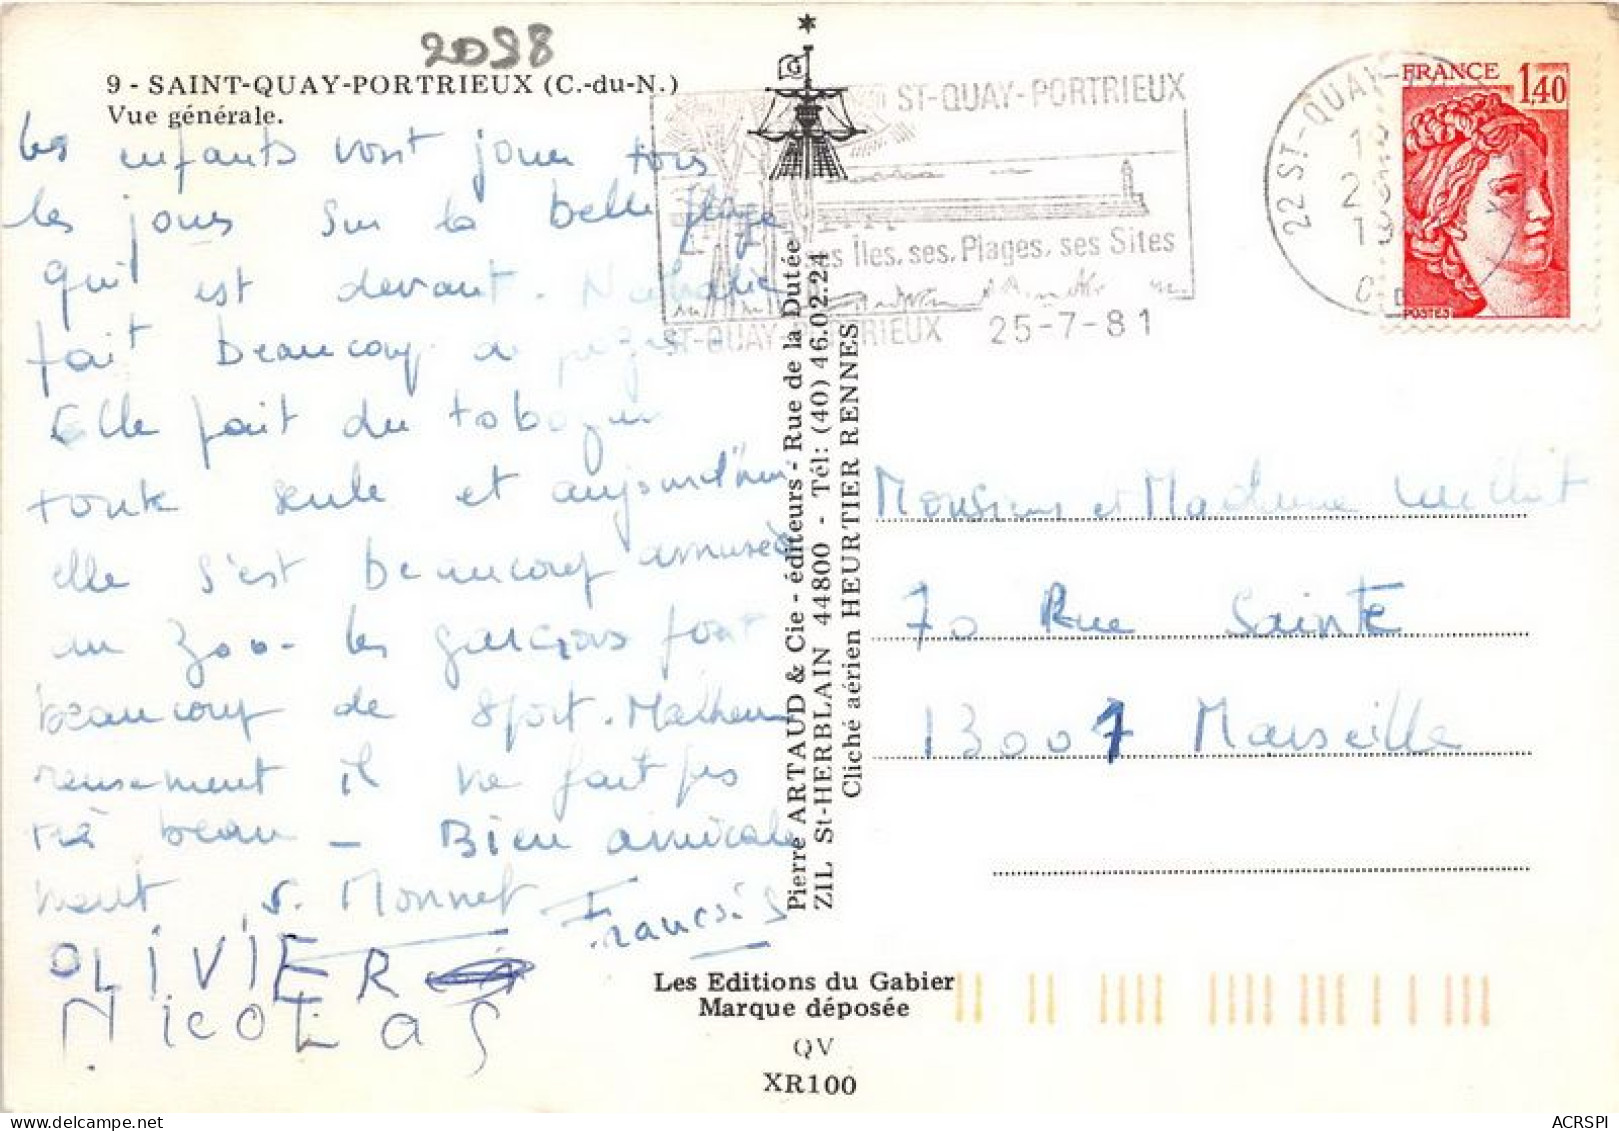 2098
9 - SAINT-QUAY-PORTRIEUX (C.-du-N.)
Vue générale.
Les enfants vont jouer tous
les jours sur la belle plage
qui est devant. Nathalie
fait beaucoup de progrès
Elle fait du toboggan
toute seule et aujourd'hui
elle s'est beaucoup amusée
au zoo - les garçons font
beaucoup de sport. Malheu
reusement il ne fait pas
très beau - Bien amicale
ment S. Monnet
Francis
OLIVIER
NicOLaS
ST-QUAY-PORTRIEUX
ses Îles, ses, Plages, ses Sites
ST-QUAY-PORTRIEUX 25-7-81
22 ST-QUAY-P
FRANCE 1,40
POSTES
Pierre ARTAUD & Cie - éditeurs - Rue de la Dutée
ZIL St-HERBLAIN 44800 - Tél: (40) 46.02.24
Cliché aérien HEURTIER RENNES
Monsieur et Madame
70 Rue Sainte
13007 Marseille
Les Editions du Gabier
Marque déposée
QV
XR100
ACRSPI